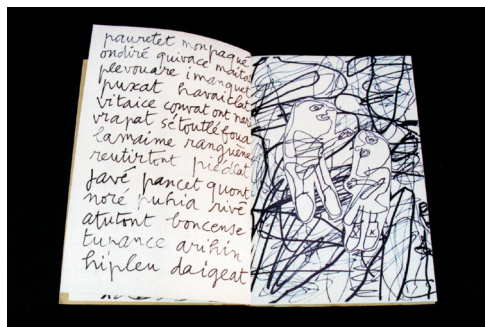 pauretet monpaqué
ondiré quivace maitos
plevouare imanquet
puxat havaidat
vitaice convat ont
vrapat sétoutlé foua
lamaime ranguène
reutirtont piédlat
javé pancet quont
noré puhia rivé
atutont boncense
tupance arihin
hipleu daigeat